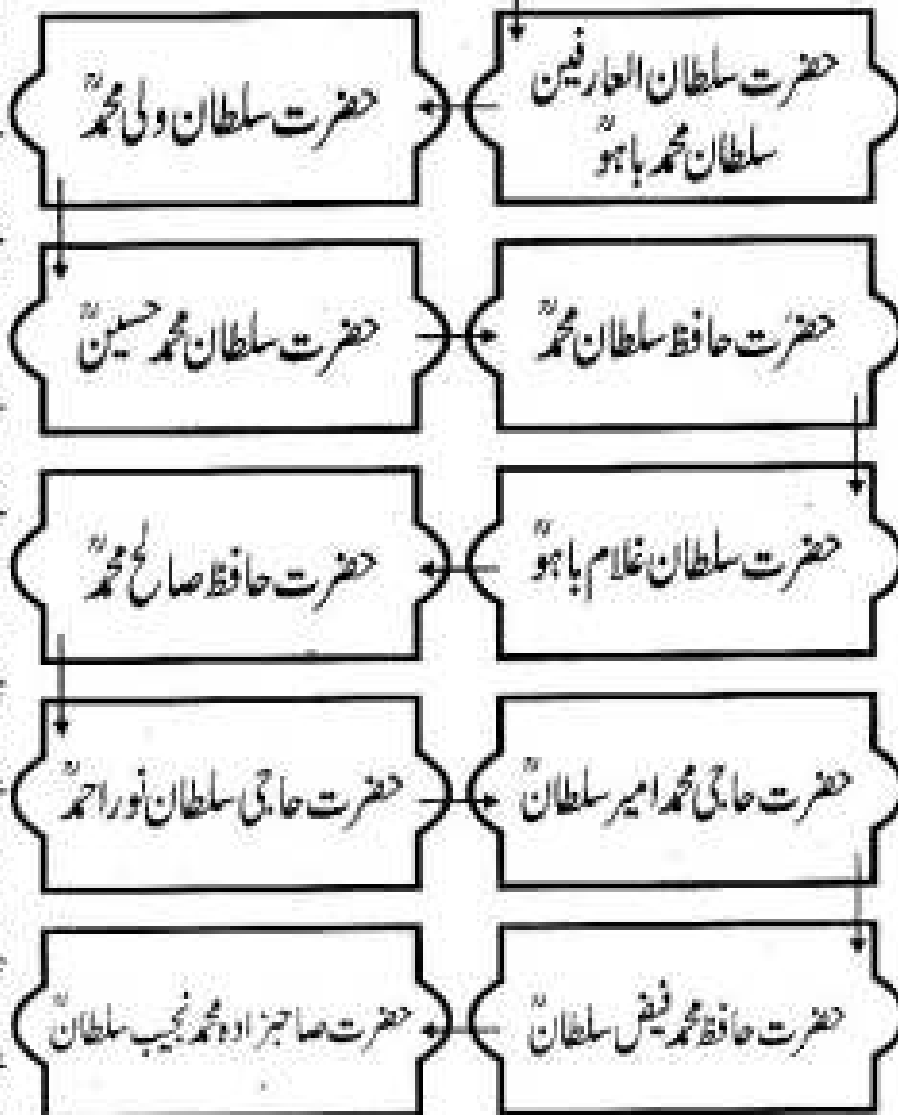 حضرت سلطان العارفین
سلطان محمد باہوؒ
حضرت سلطان ولی محمدؒ
حضرت سلطان محمد حسینؒ
حضرت حافظ سلطان محمدؒ
حضرت سلطان غلام باہوؒ
حضرت حافظ صالح محمدؒ
حضرت حاجی سلطان نور احمدؒ
حضرت حاجی محمد امیر سلطانؒ
حضرت حافظ محمد فیض سلطانؒ
حضرت صاحبزادہ محمد نجیب سلطانؒ